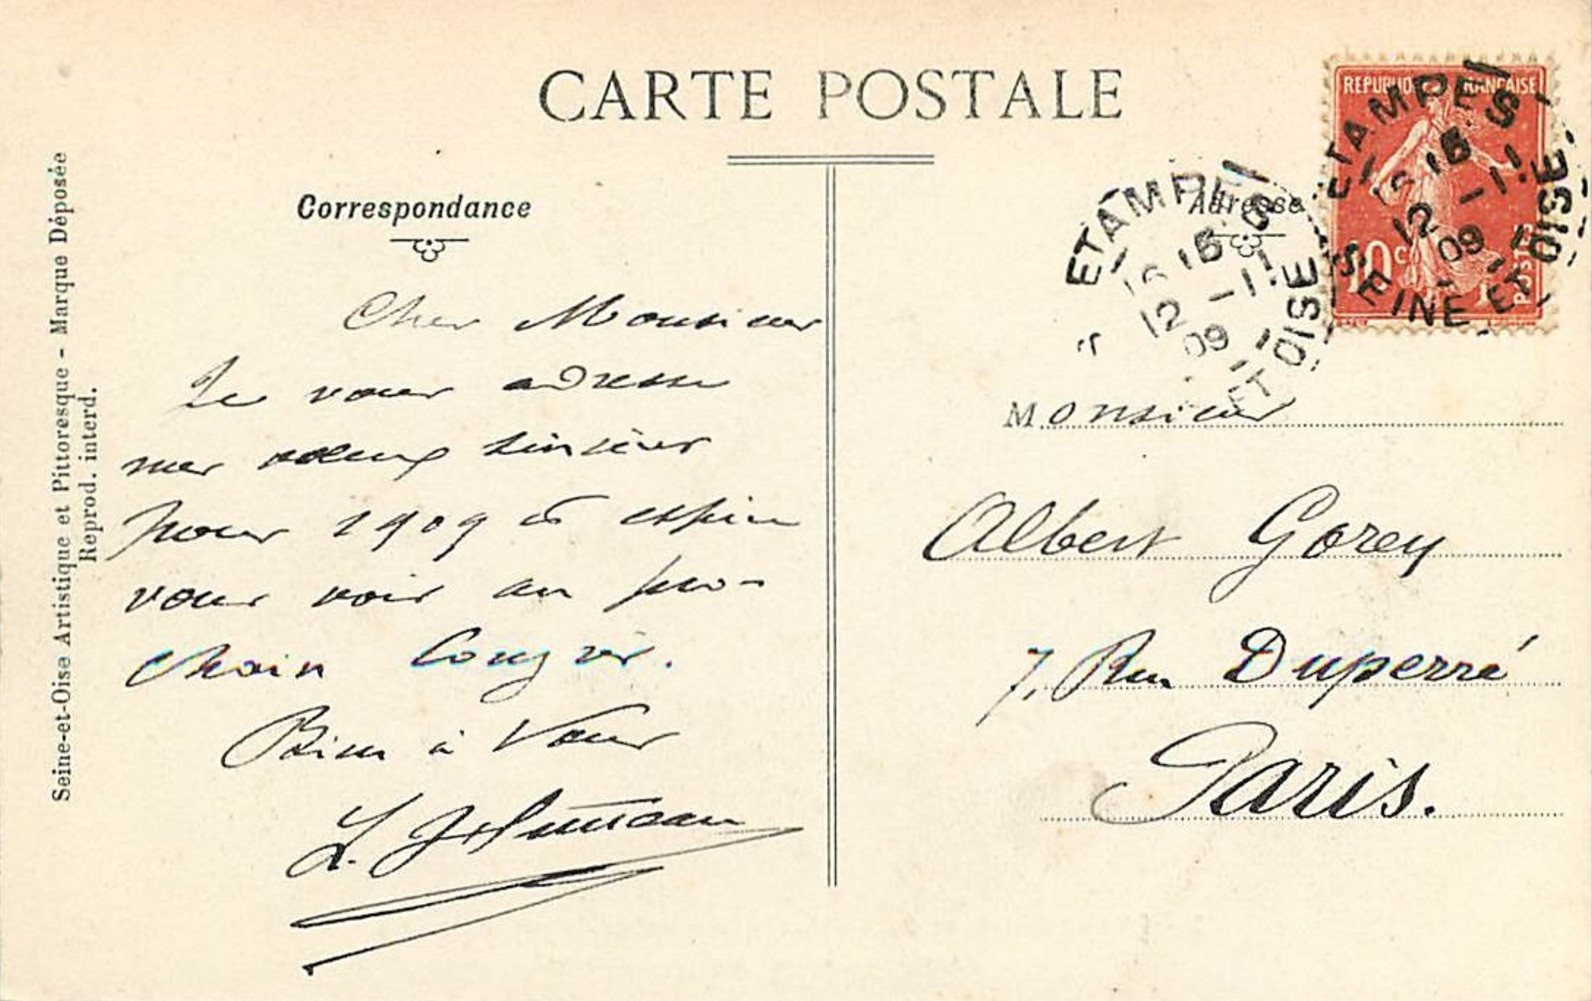 CARTE POSTALE
Correspondance
Cher Monsieur
Je vous adresse
mes vœux sincères
pour 1909 et espère
vous voir au pro-
chain Congrès.
Bien à Vous
L.
Seine-et-Oise Artistique et Pittoresque - Marque Déposée
Reprod. interd.
Adresse
ETAMPES
12 -1
09
ET OISE
REPUBLIQUE FRANÇAISE
10 c
POSTES
ETAMPES
12 -1
09
SEINE ET OISE
Monsieur
Albert Gorey
7, Rue Duperré
Paris.